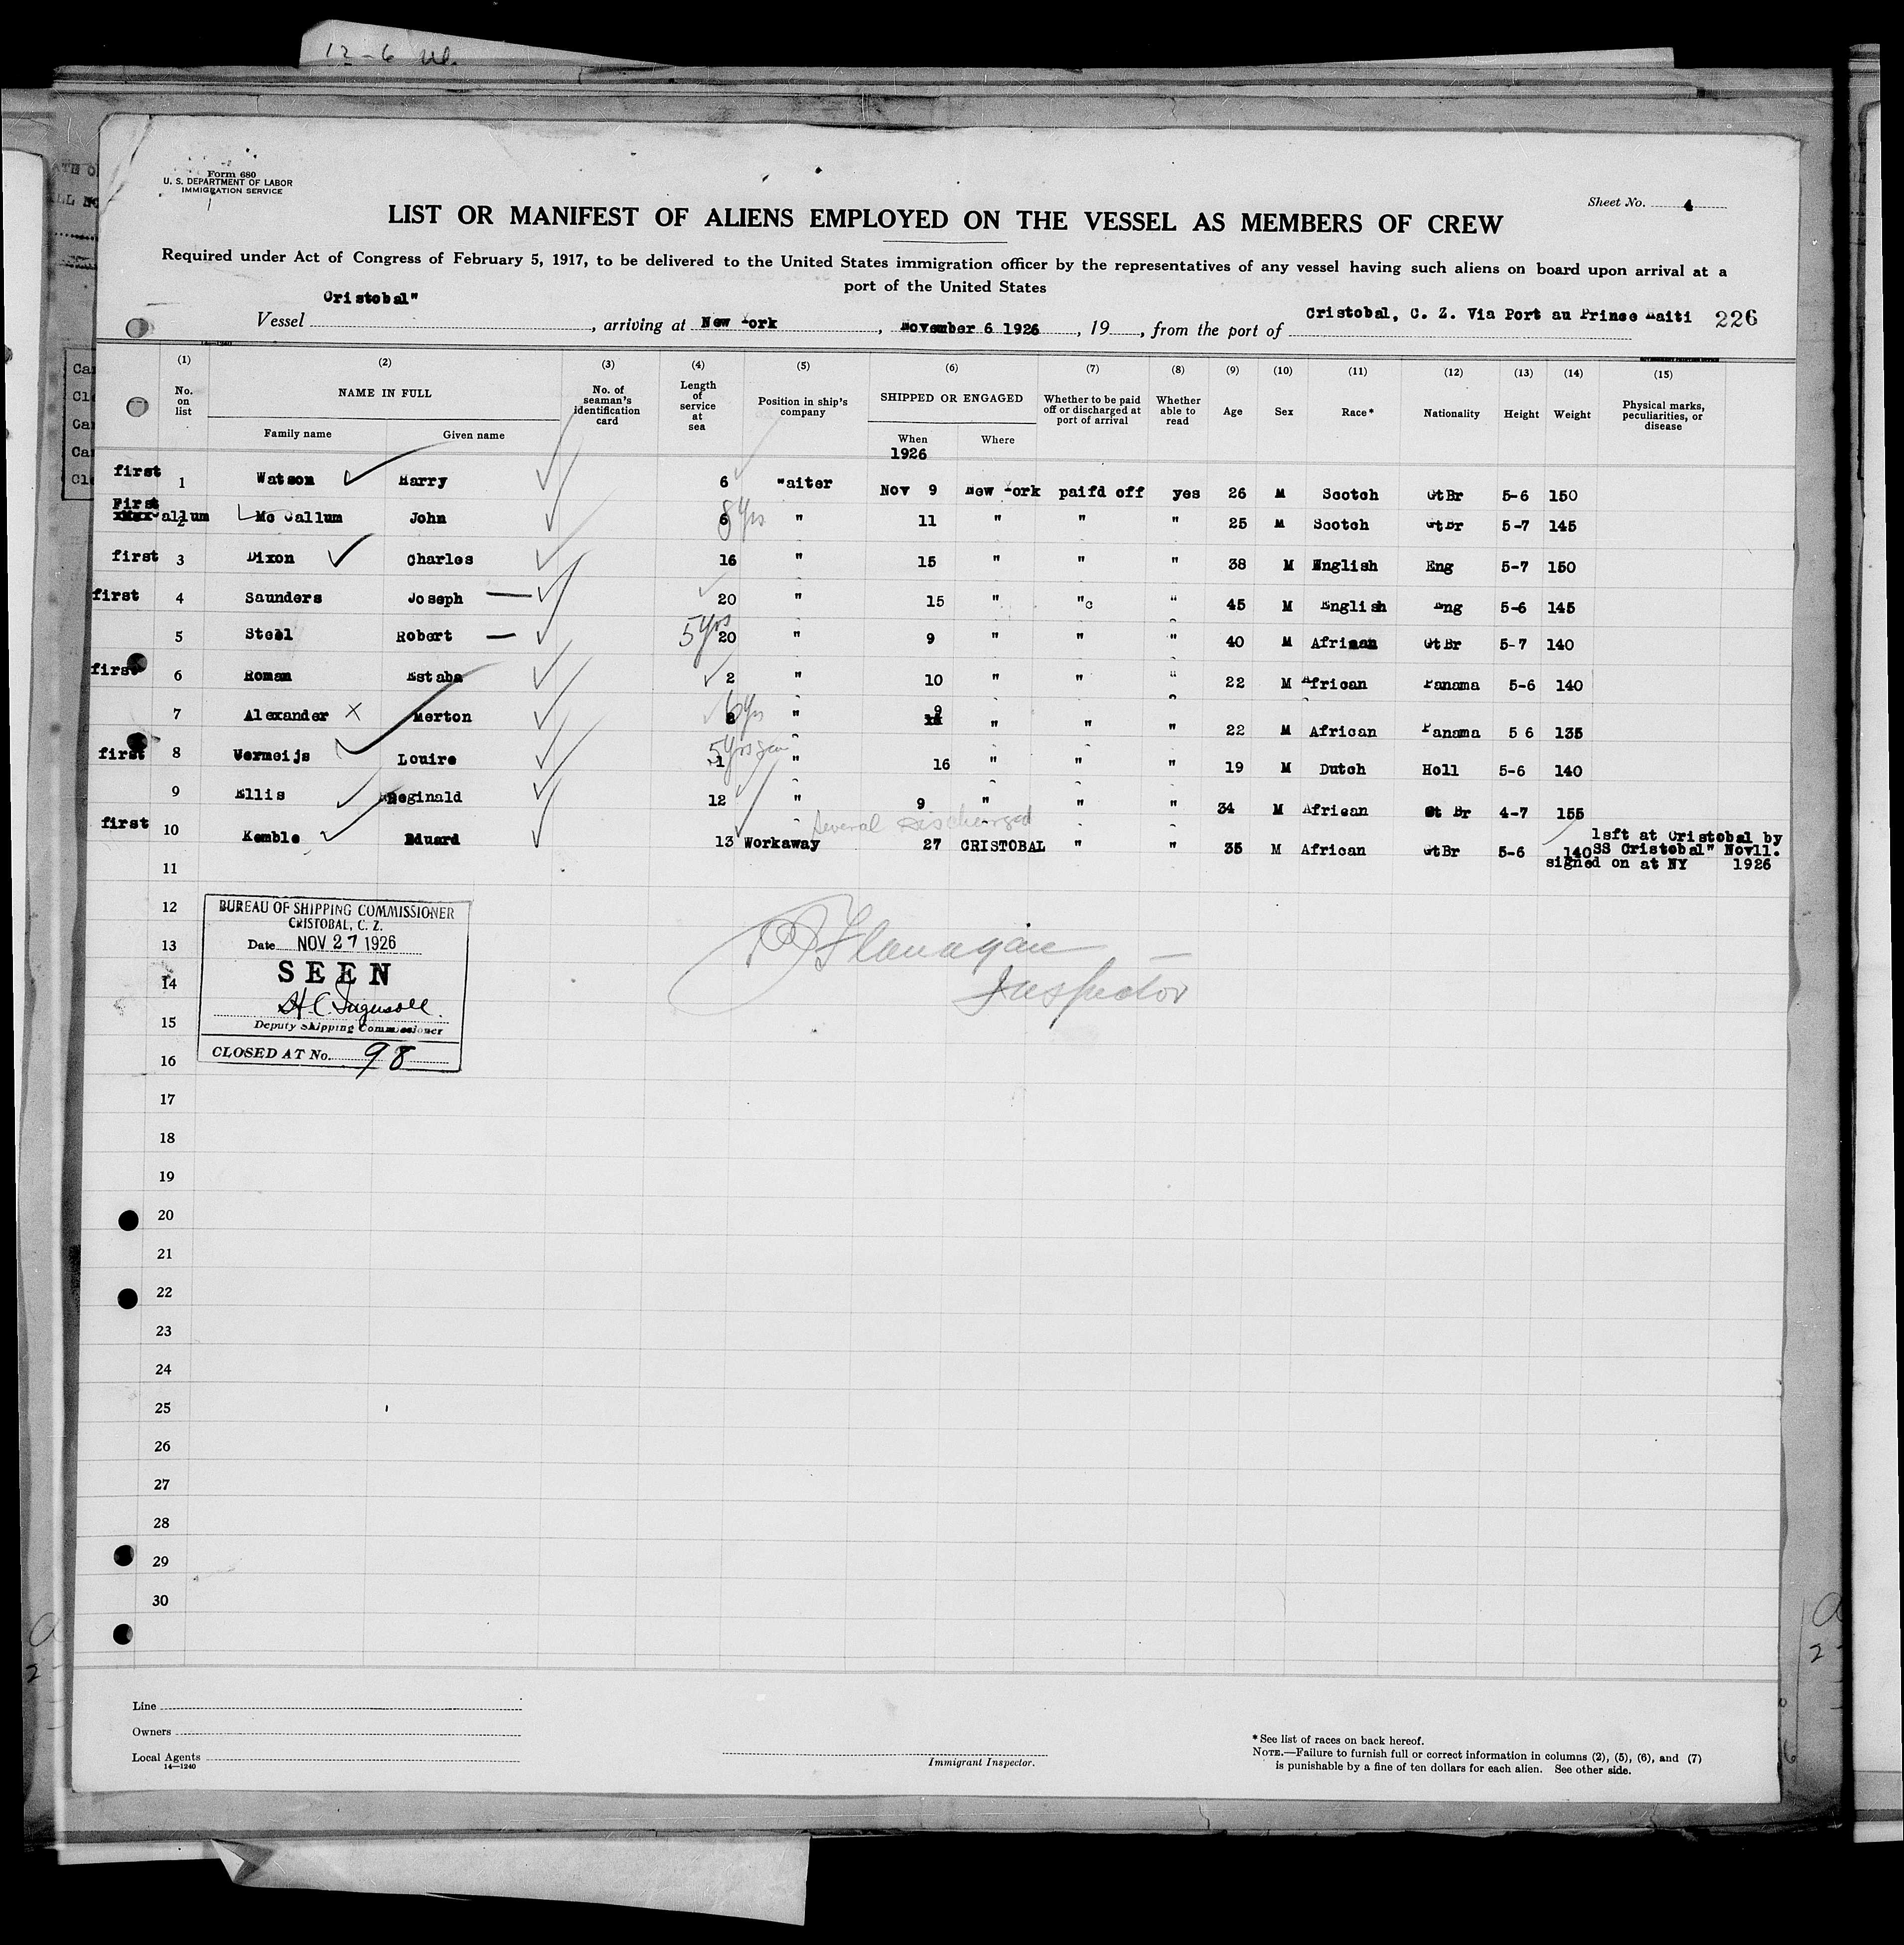 12-6
Form 680
U. S. DEPARTMENT OF LABOR
IMMIGRATION SERVICE
Sheet No. 4
LIST OR MANIFEST OF ALIENS EMPLOYED ON THE VESSEL AS MEMBERS OF CREW
Required under Act of Congress of February 5, 1917, to be delivered to the United States immigration officer by the representatives of any vessel having such aliens on board upon arrival at a
port of the United States
Vessel Cristobal" , arriving at New York , November 6 1926 , 19 , from the port of Cristobal, C. Z. Via Port au Prince Haiti 226
(1) (2) (3) (4) (5) (6) (7) (8) (9) (10) (11) (12) (13) (14) (15)
No. on list NAME IN FULL Family name Given name No. of seaman's identification card Length of service at sea Position in ship's company SHIPPED OR ENGAGED When Where Whether to be paid off or discharged at port of arrival Whether able to read Age Sex Race* Nationality Height Weight Physical marks, peculiarities, or disease
1926
first 1 Watson Harry 6 Waiter Nov 9 New York paifd off yes 26 M Scotch GtBr 5-6 150
First allum 2 Mc Callum John 6 8 yrs " 11 " " " 25 M Scotch GtBr 5-7 145
first 3 Dixon Charles 16 " 15 " " " 38 M English Eng 5-7 150
first 4 Saunders Joseph 20 " 15 " "c " 45 M English Eng 5-6 145
5 Steel Robert 5 yrs 20 " 9 " " " 40 M African GtBr 5-7 140
first 6 Roman Estaba 2 " 10 " " " 22 M African Panama 5-6 140
7 Alexander X Merton 6 yrs " 9 " " " 22 M African Panama 5 6 135
first 8 Vermeijs Louire 5 yrs 1 " 16 " " " 19 M Dutch Holl 5-6 140
9 Ellis Reginald 12 " 9 " " " 34 M African Gt Br 4-7 155
Several discharged
first 10 Kemble Eduard 13 Workaway 27 CRISTOBAL " " 35 M African GtBr 5-6 140 left at Cristobal by
SS Cristobal" Nov11.
signed on at NY 1926
11
12
13
14
15
16
17
18
19
20
21
22
23
24
25
26
27
28
29
30
BUREAU OF SHIPPING COMMISSIONER
CRISTOBAL, C. Z.
Date NOV 27 1926
SEEN
H. C. Ingersoll.
Deputy Shipping Commissioner
CLOSED AT No. 98
Flanagan
Inspector
Line
Owners
Local Agents
14—1240
Immigrant Inspector.
*See list of races on back hereof.
NOTE.—Failure to furnish full or correct information in columns (2), (5), (6), and (7)
is punishable by a fine of ten dollars for each alien. See other side.